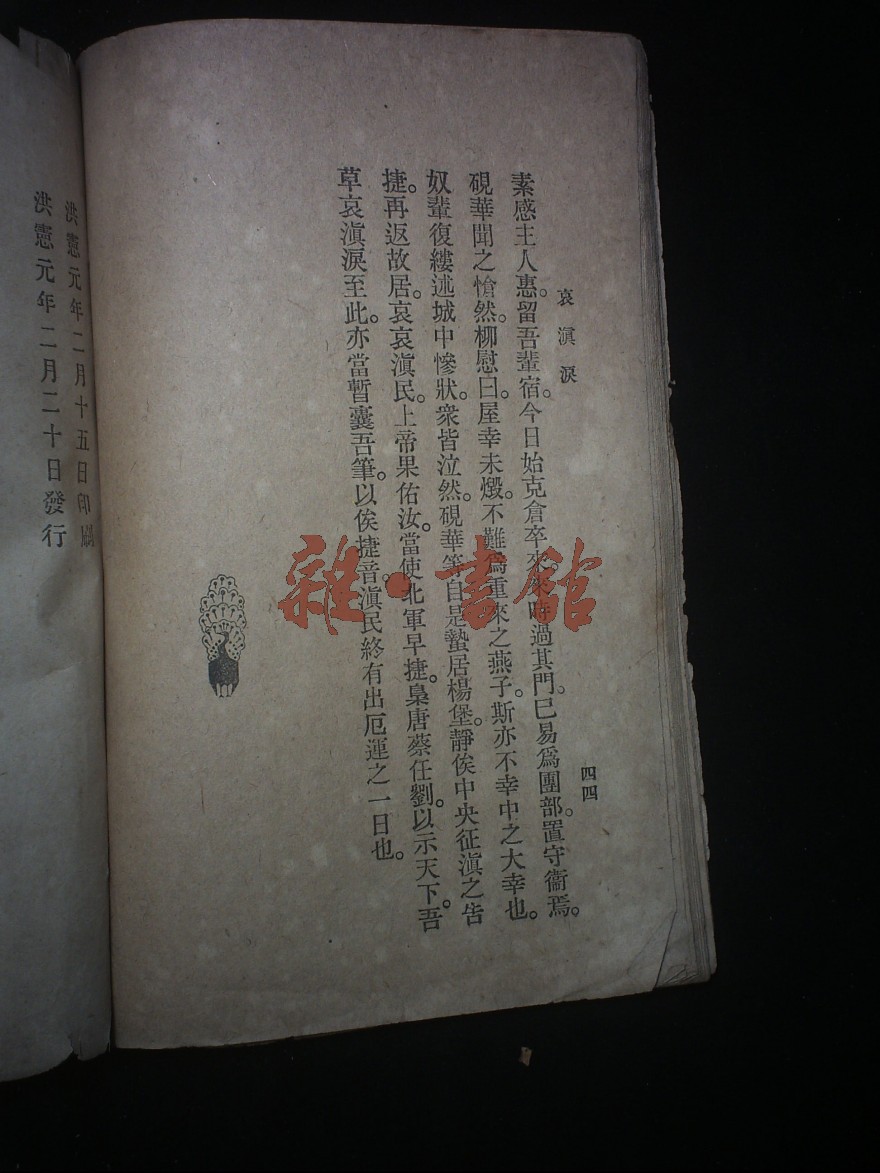 哀滇淚
四四
素感主人惠。留吾輩宿。今日始克倉卒來。來時過其門。已易爲團部。置守衞焉。
硯華聞之愴然。柳慰曰。屋幸未燬。不難爲重來之燕子。斯亦不幸中之大幸也。
奴輩復縷述城中慘狀。衆皆泣然。硯華等自是蟄居楊堡。靜俟中央征滇之吿
捷。再返故居。哀哀滇民。上帝果佑汝。當使北軍早捷。梟唐蔡任劉。以示天下。吾
草哀滇淚至此。亦當暫囊吾筆。以俟捷音。滇民終有出厄運之一日也。
洪憲元年二月十五日印刷
洪憲元年二月二十日發行
雜·書館